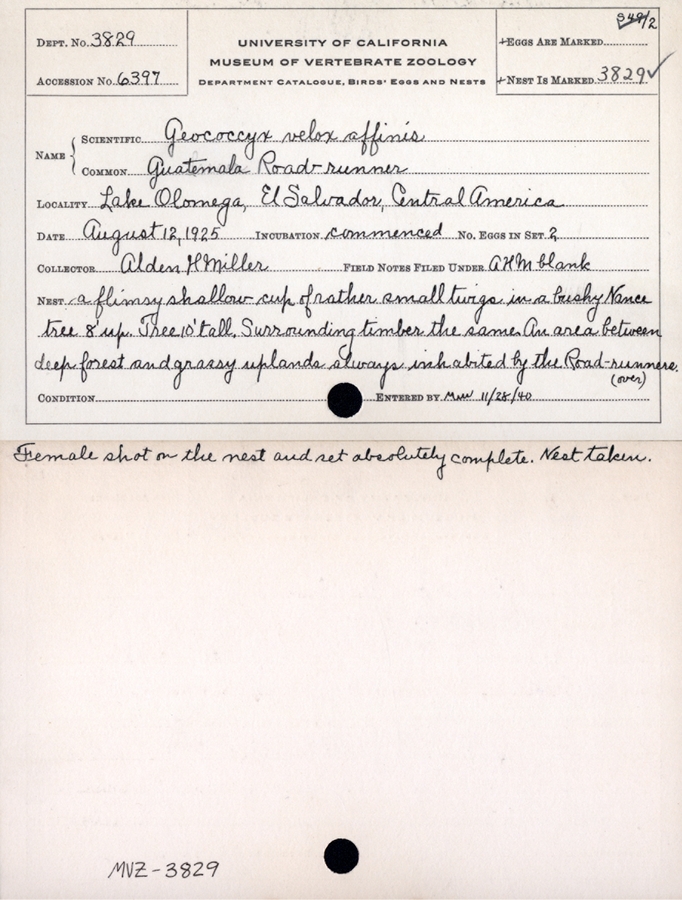 DEPT. NO. 3829
ACCESSION NO. 6397
UNIVERSITY OF CALIFORNIA
MUSEUM OF VERTEBRATE ZOOLOGY
DEPARTMENT CATALOGUE, BIRDS' EGGS AND NESTS
EGGS ARE MARKED 348/2
NEST IS MARKED 3829 ✓
NAME
SCIENTIFIC Geococcyx velox affinis
COMMON Guatemala Road-runner
LOCALITY Lake Olomega, El Salvador, Central America
DATE August 12, 1925 INCUBATION commenced NO. EGGS IN SET 2
COLLECTOR Alden H Miller FIELD NOTES FILED UNDER AHM blank
NEST a flimsy shallow cup of rather small twigs in a bushy Nance
tree 8' up. Tree 10' tall. Surrounding timber the same. An area between
deep forest and grassy uplands always inhabited by the Road-runners.
(over)
CONDITION ENTERED BY 11/28/40
Female shot on the nest and set absolutely complete. Nest taken.
MVZ-3829